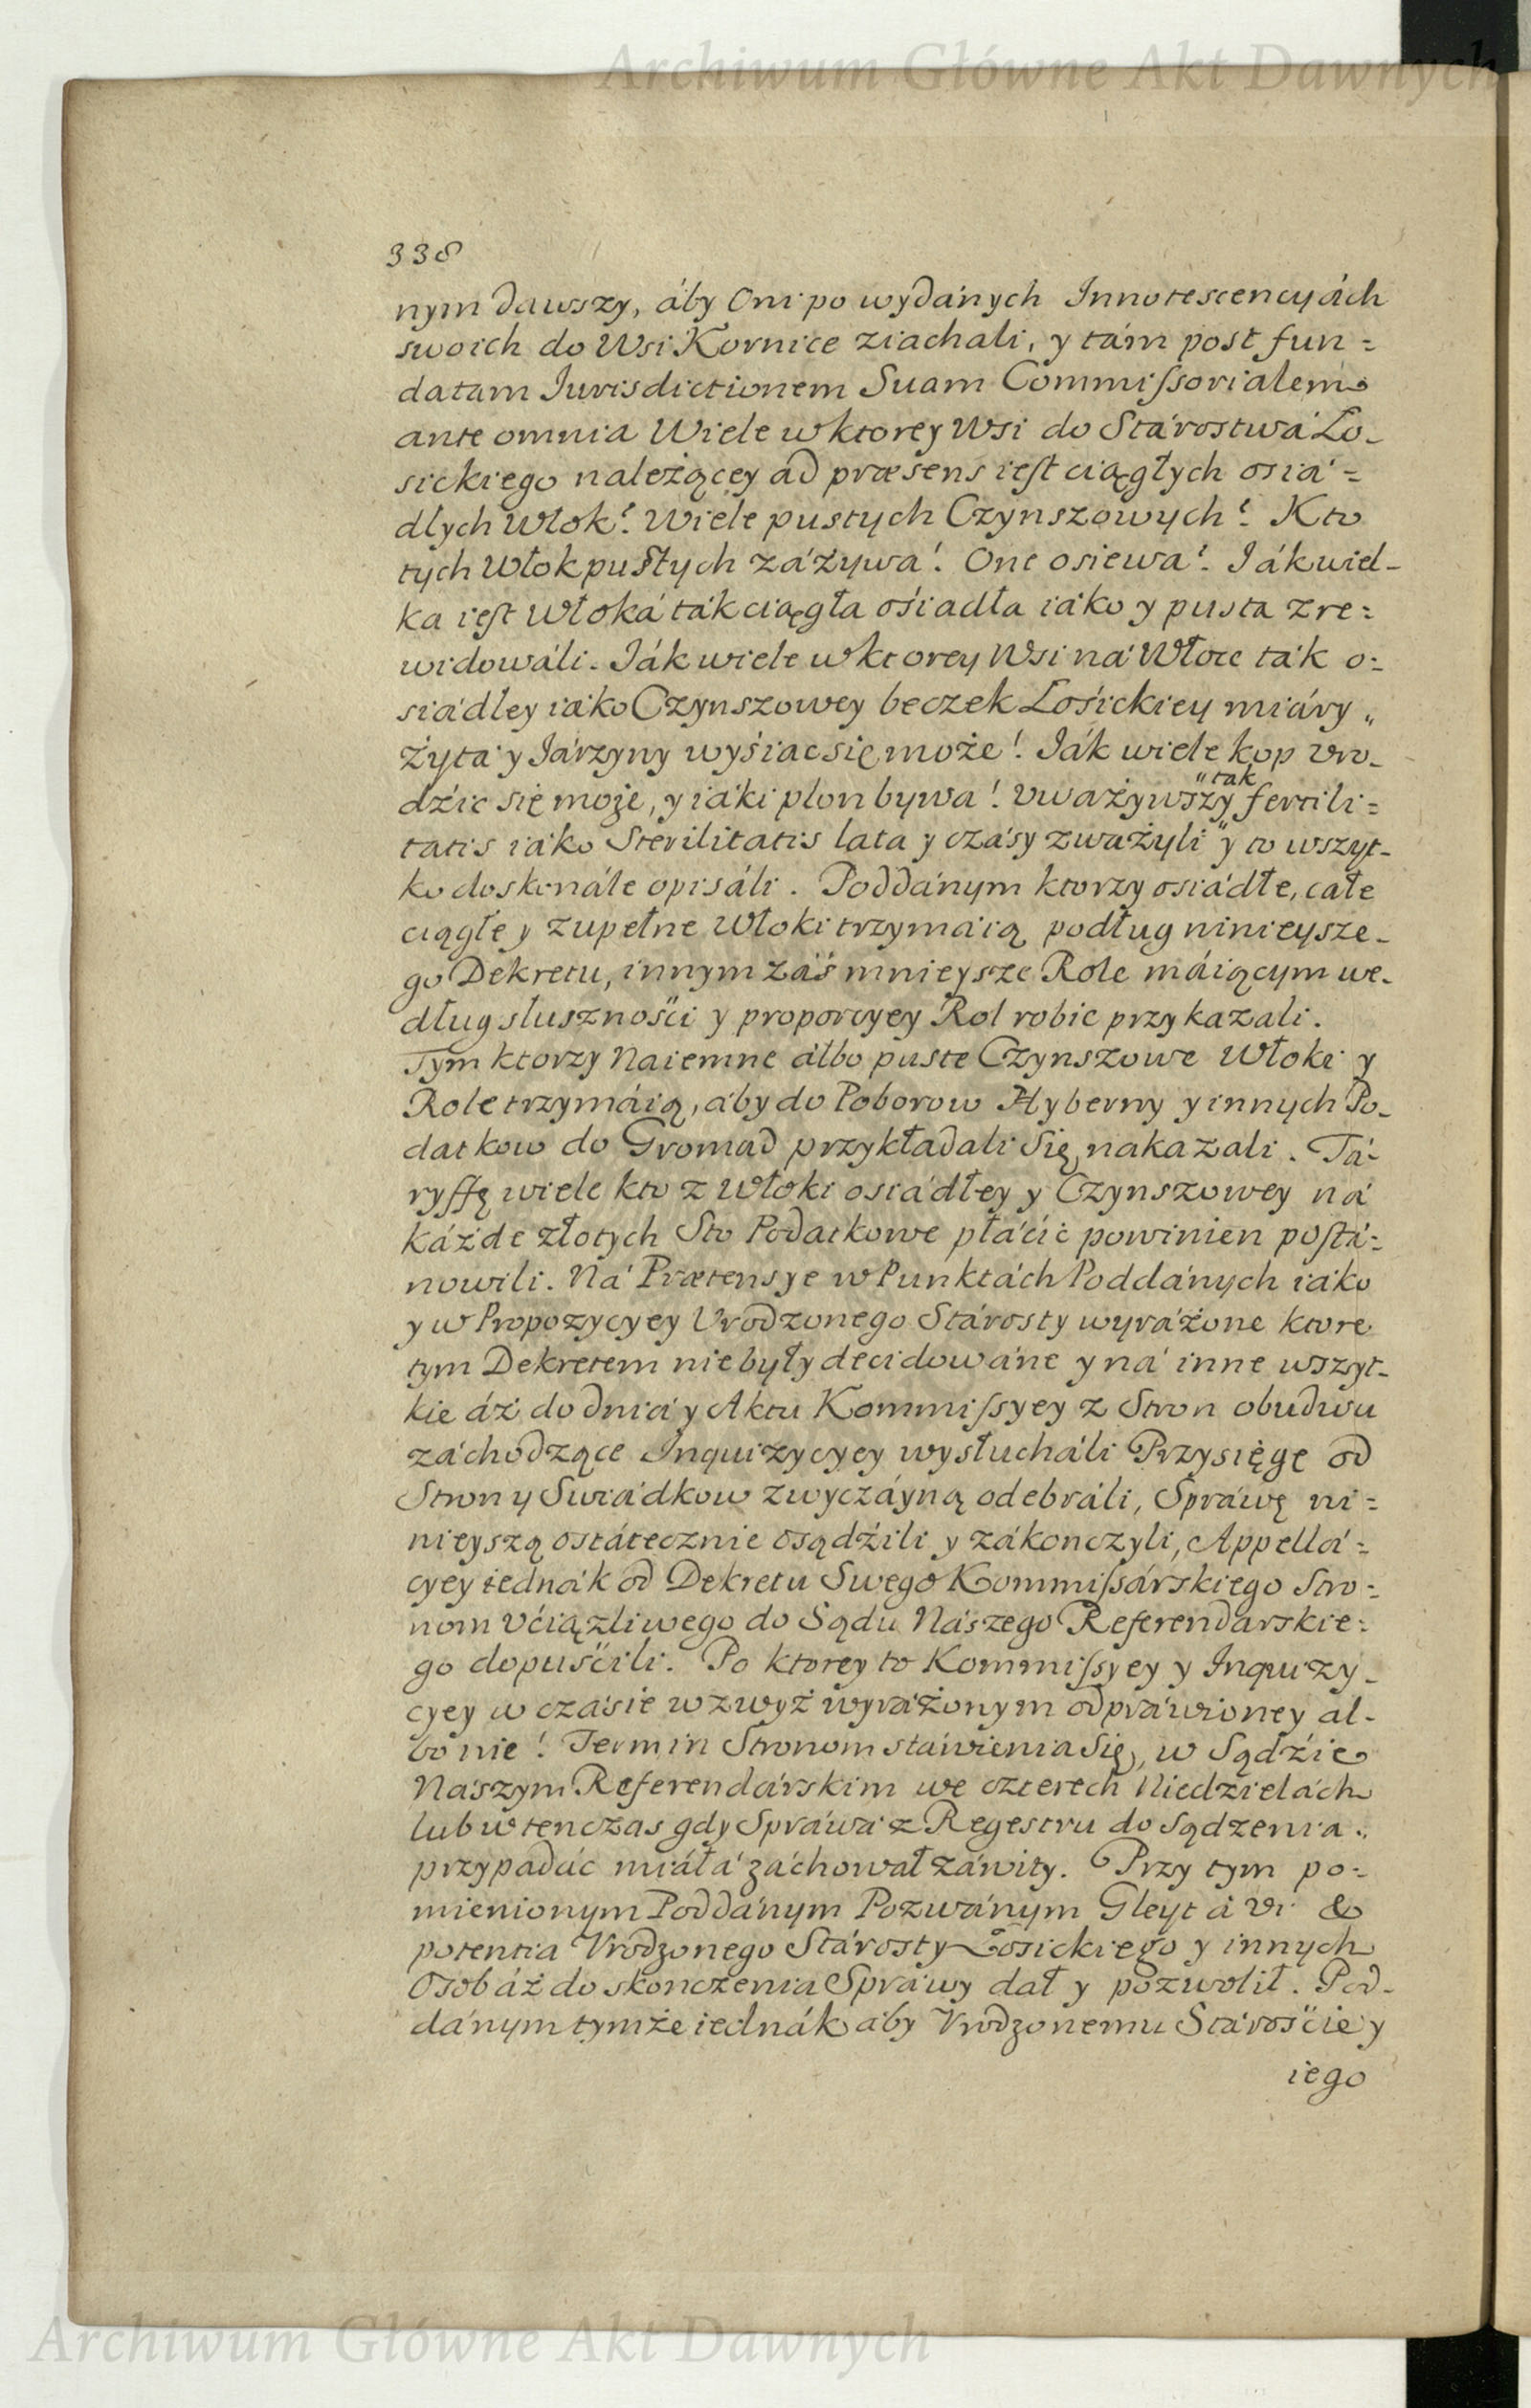 Archiwum Główne Akt Dawnych
338
nym dawszy, áby Oni po wydánych Innotescencyách
swoich do Wsi Kornice ziachali, y tám post fun=
datam Iurisdictionem Suam Commiſsorialem
ante omnia Wiele w ktorey Wsi do Stárostwá Ło-
sickiego należącey ad præsens ieſt ciągłych osia=
dłych Włok? Wiele pustych Czynszowych? Kto
tych Włok pustych záżywa? One osiewa? Iák wiel-
ka ieſt Włoká ták ciągła ośiadła iáko y pusta zre=
widowáli. Iák wiele w ktorey Wsi ná Włoce ták o=
siádłey iáko Czynszowey beczek Łośickiey miáry „
Żyta y Iárzyny wyśiac się może? Iák wiele kop vro-
dźic się może, y iáki plon bywa? Vważywszy "tak fertili=
tatis iáko Sterilitatis lata y czásy zważyli" y to wszyt-
ko doskonále opisáli. Poddánym ktorzy osiádłe, całe
ciągłe y zupełne Włoki trzymáią podług ninieysze-
go Dekretu, innym záś mnieysze Role máiącym we-
dług słusznośći y proporcyey Rol robic przykazali.
Tym ktorzy Naiemne álbo puste Czynszowe Włoki y
Role trzymáią, áby do Poborow Hyberny y innych Po-
datkow do Gromad przykładali się nakazali. Tá-
ryffę wiele kto z Włoki osiádłey y Czynszowey ná
káżde złotych Sto Podatkowe płácić powinien poſtá=
nowili. Ná Prætensye w Punktách Poddánych iáko
y w Propozycyey Vrodzonego Stárosty wyráżone ktore
tym Dekretem nie były decidowáne y ná inne wszyt-
kie áż do dniá y Aktu Kommiſsyey z Stron obudwu
záchodzące Inquizycyey wysłucháli Przysięgę od
Strony Swiádkow zwyczáyną odebráli, Spráwę ni=
nieyszą ostátecznie osądźili y zákonczyli, Appellá=
cyey iednák od Dekretu Swego Kommiſsárskiego Stro=
nom vćiążliwego do Sądu Nászego Referendarskie=
go dopuśćili. Po ktorey to Kommiſsyey y Inquizy-
cyey w czásie wzwyż wyráżonym odpráwioney al-
bo nie? Termin Stronom stáwienia się, w Sądźie
Nászym Referendárskim we czterech Niedzielách
lub w ten czas gdy Spráwá z Regestru do Sądzenia
przypadác miáłá záchował záwity. Przy tym po=
mienionym Poddánym Pozwánym Gleyt á vi &
potentia Vrodzonego Stárosty Łosickiego y innych
Osob áż do skonczenia Spráwy dał y pozwolił. Pod-
dánym tymże iednák aby Vrodzonemu Stárośćie y
iego
Archiwum Główne Akt Dawnych